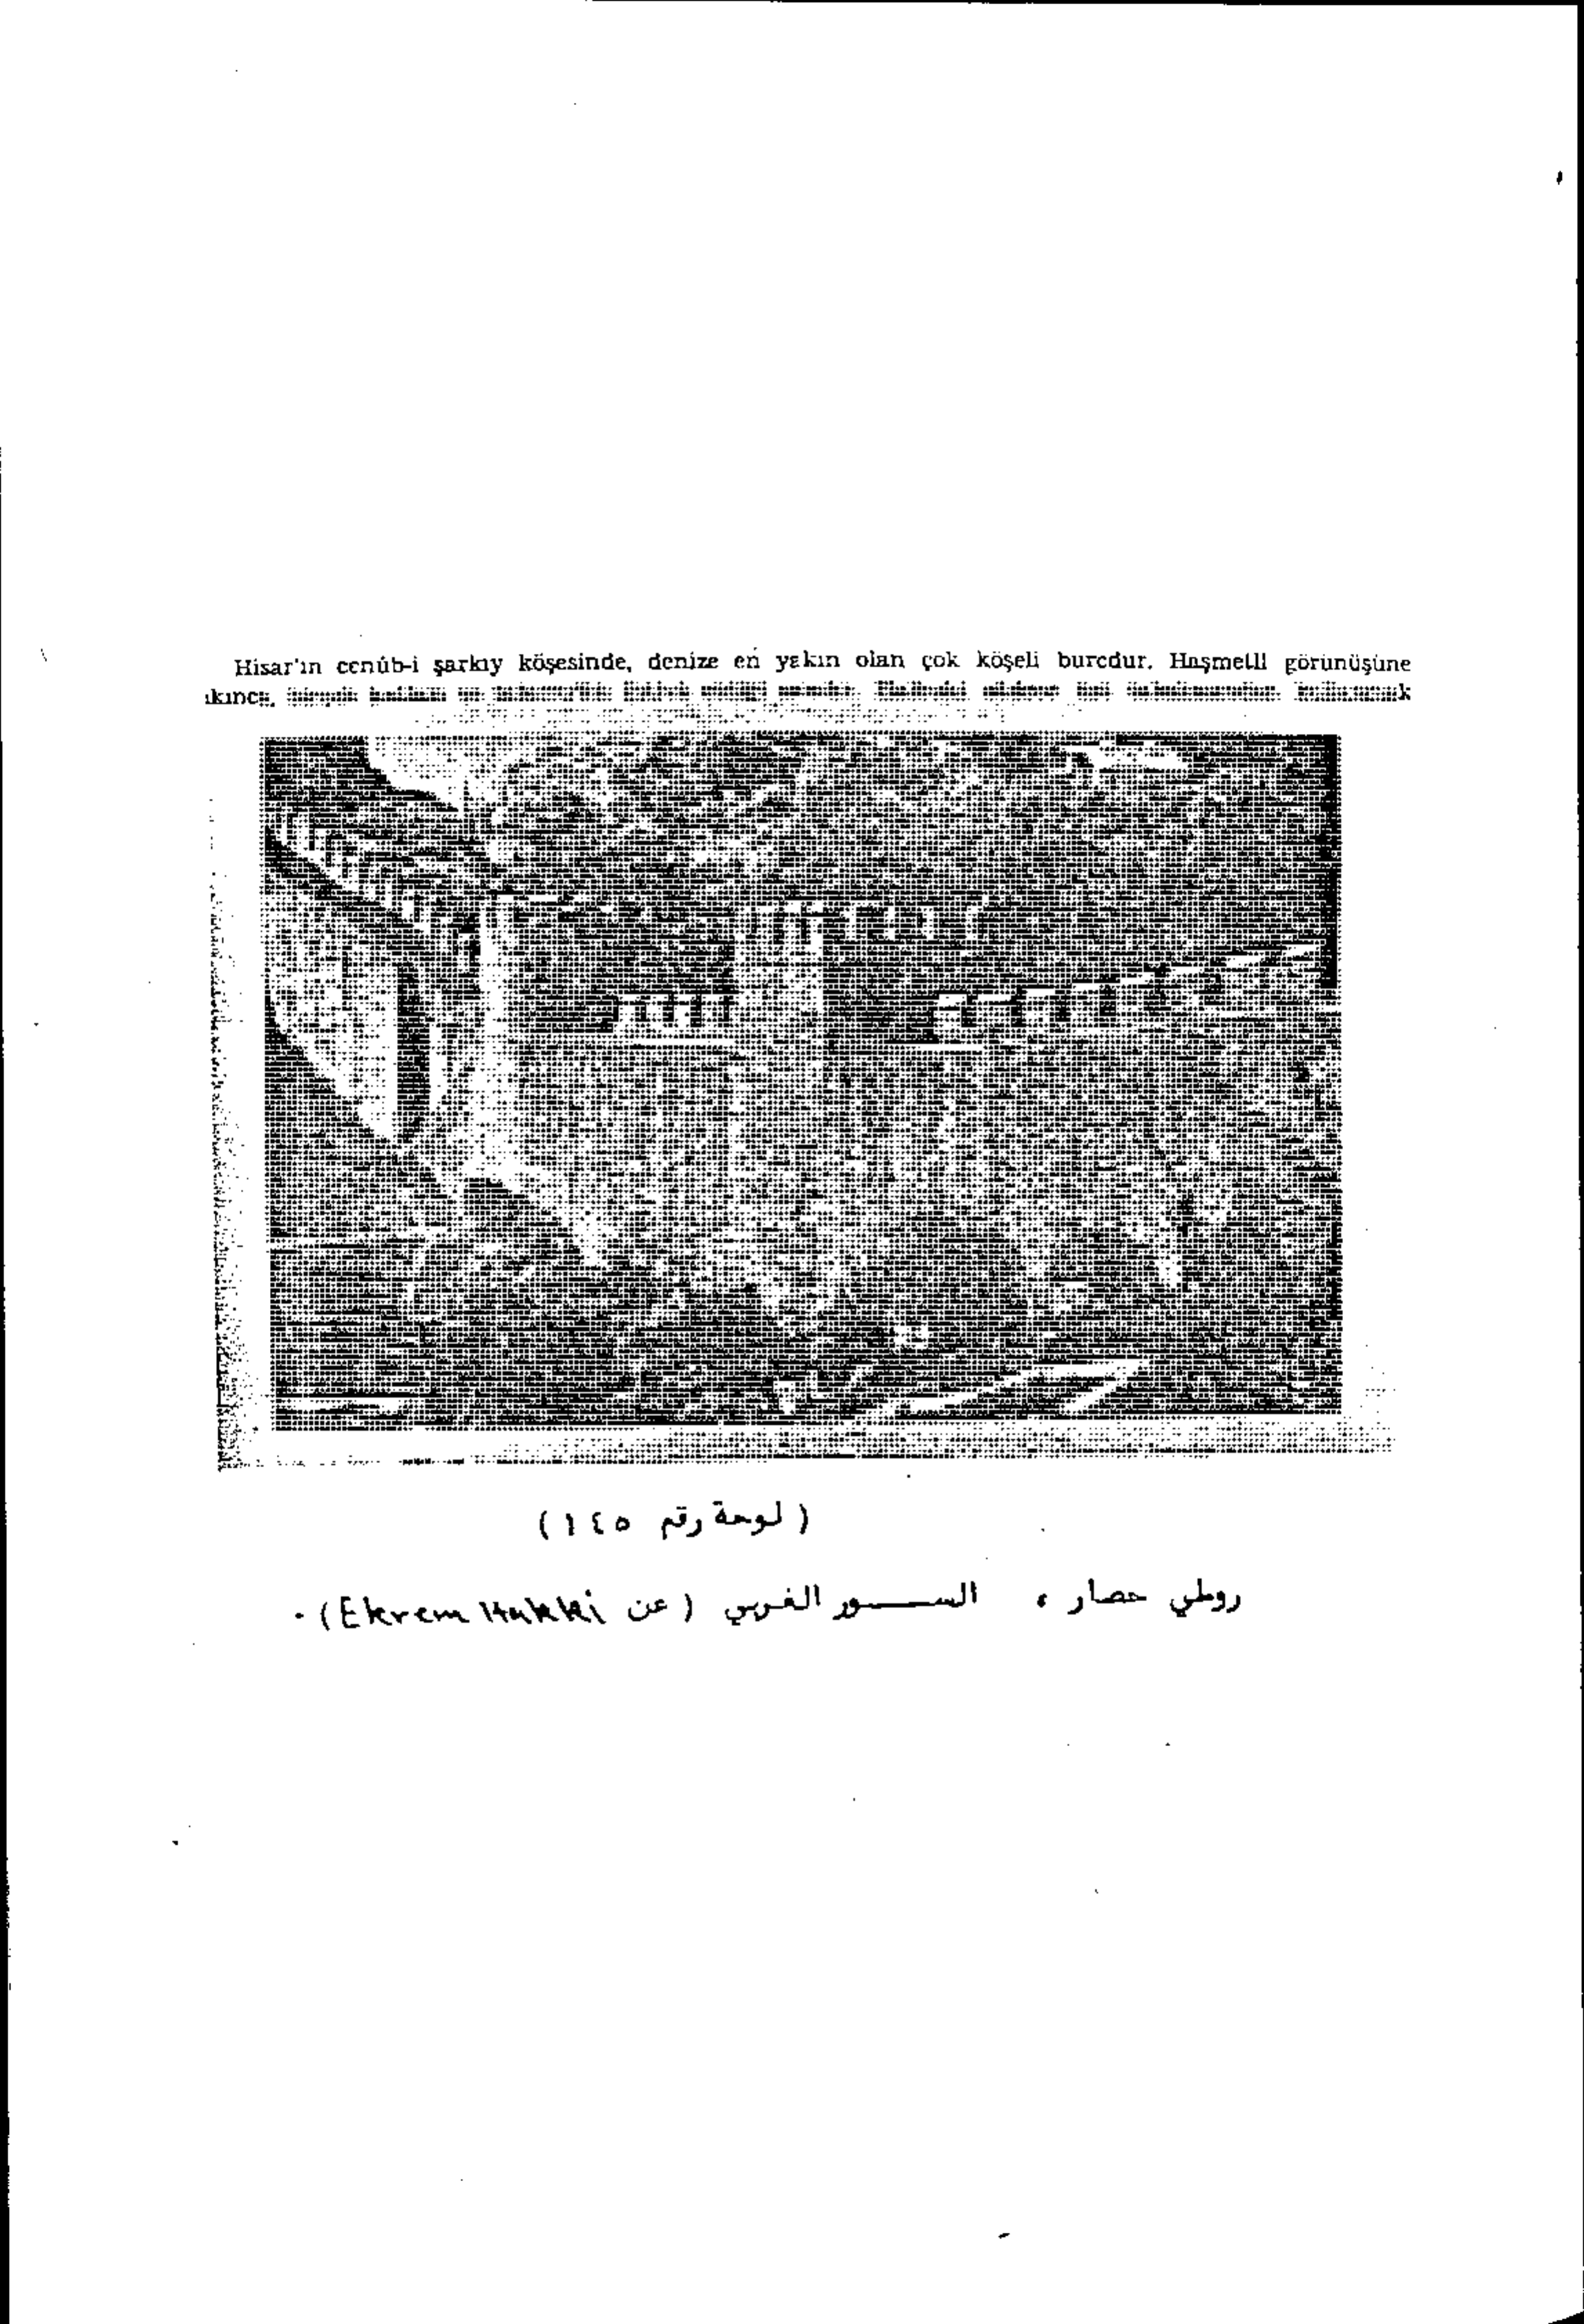 Hisar'ın cenûb-i şarkıy köşesinde, denize en yakın olan çok köşeli burcdur. Haşmetli görünüşüne
( لوحة رقم ١٤٥ )
روملي حصار ، الســـور الغربي ( عن Ekrem Hakki ) .